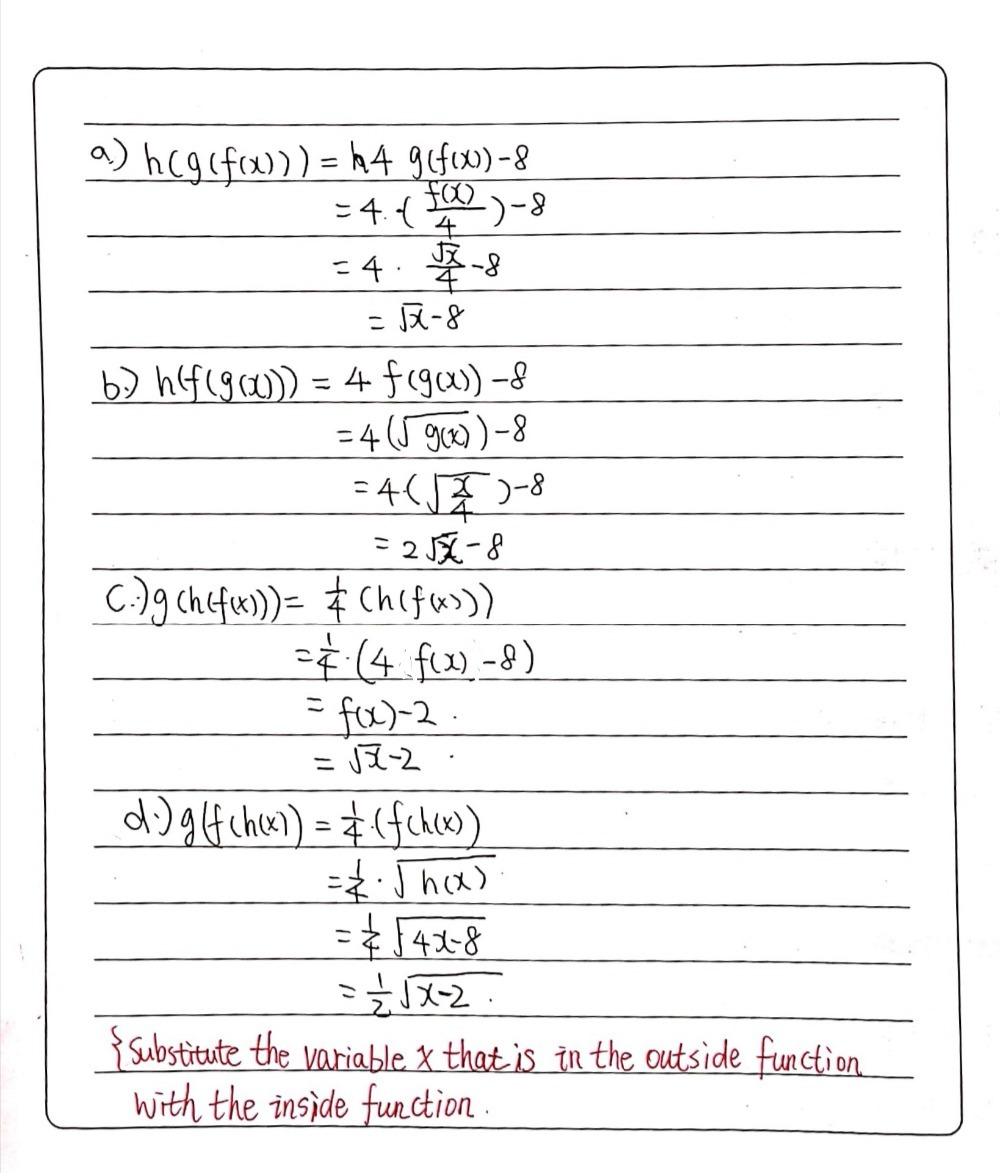 a.) h(g(f(x))) = 4 g(f(x))-8
= 4.(f(x)/4)-8
= 4 . √x/4 -8
= √x-8
b.) h(f(g(x))) = 4 f(g(x)) -8
=4(√g(x))-8
=4(√x/4)-8
= 2√x-8
C.) g(h(f(x)))= 1/4 (h(f(x)))
=1/4.(4 f(x) -8)
= f(x)-2.
= √x-2 .
d.) g(f(h(x)) = 1/4.(f(h(x))
=1/4.√h(x)
=1/4 √4x-8
=1/2 √x-2 .
{Substitute the variable x that is in the outside function
with the inside function.